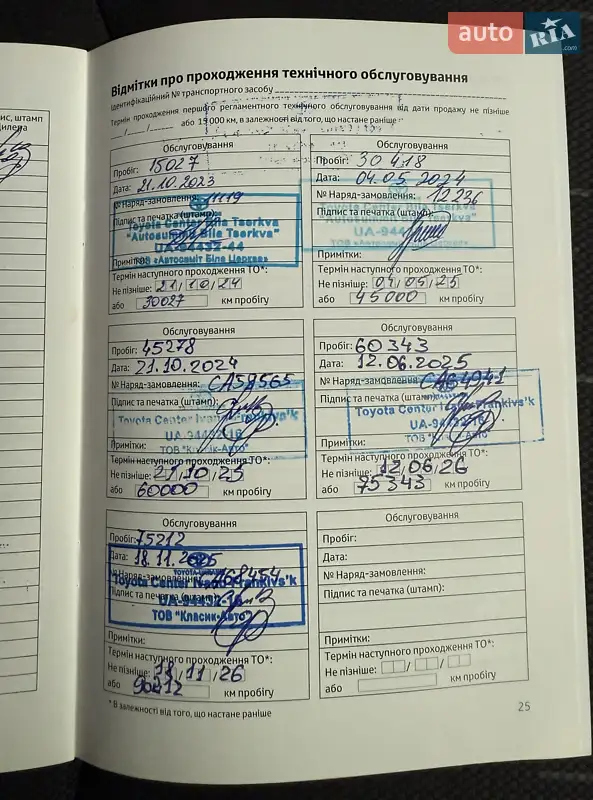 auto RIA.com
ис, штамп
дилера
Відмітки про проходження технічного обслуговування
Ідентифікаційний № транспортного засобу
Термін проходження першого регламентного технічного обслуговування від дати продажу не пізніше
__/__/____ або 15 000 км, в залежності від того, що настане раніше*
Обслуговування
Пробіг: 15027
Дата: 21.10.2023
№ Наряд-замовлення: 11119
Підпис та печатка (штамп):
Toyota Center Bila Tserkva
"Autosummit Bila Tserkva"
UA-94432-44
ТОВ «Автосаміт Біла Церква»
Примітки:
Термін наступного проходження ТО*:
Не пізніше: 21/10/24
або 30027 км пробігу
Обслуговування
Пробіг: 30418
Дата: 04.05.2024
№ Наряд-замовлення: 12236
Підпис та печатка (штамп):
Toyota Center Bila Tserkva
Примітки:
Термін наступного проходження ТО*:
Не пізніше: 04/05/25
або 45000 км пробігу
Обслуговування
Пробіг: 45278
Дата: 21.10.2024
№ Наряд-замовлення: CA59565
Підпис та печатка (штамп):
Toyota Center Ivano-Frankivs'k
UA-94432-16
ТОВ "Класик-Авто"
Примітки:
Термін наступного проходження ТО*:
Не пізніше: 21/10/25
або 60000 км пробігу
Обслуговування
Пробіг: 60343
Дата: 12.06.2025
№ Наряд-замовлення: CA64941
Підпис та печатка (штамп):
Toyota Center Ivano-Frankivs'k
ТОВ "Класик-Авто"
Примітки:
Термін наступного проходження ТО*:
Не пізніше: 12/06/26
або 75343 км пробігу
Обслуговування
Пробіг: 75212
Дата: 18.11.2025
№ Наряд-замовлення:
Підпис та печатка (штамп):
Toyota Center Ivano-Frankivs'k
UA-94432-16
ТОВ "Класик-Авто"
Примітки:
Термін наступного проходження ТО*:
Не пізніше: 18/11/26
або 90212 км пробігу
Обслуговування
Пробіг:
Дата:
№ Наряд-замовлення:
Підпис та печатка (штамп):
Примітки:
Термін наступного проходження ТО*:
Не пізніше: / /
або км пробігу
* В залежності від того, що настане раніше
25